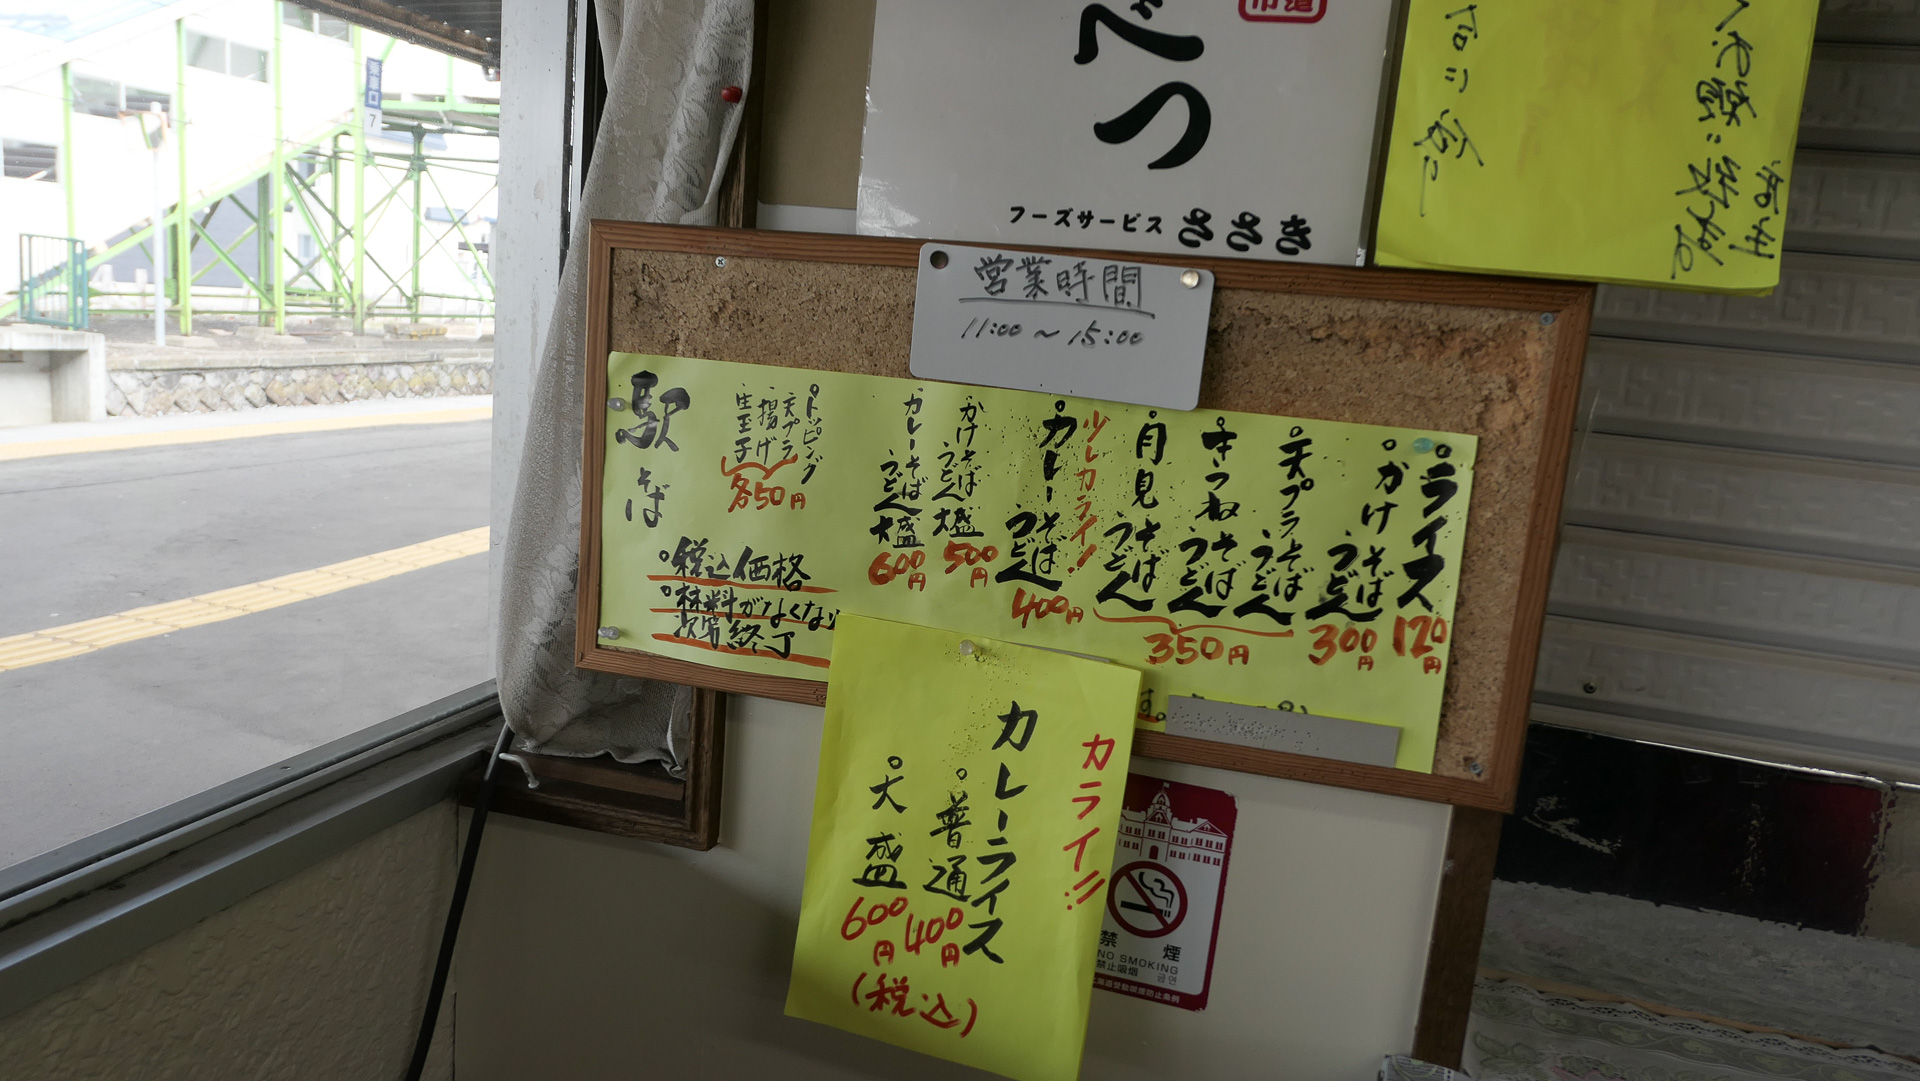 べつ
フーズサービス ささき
営業時間
11:00 ~ 15:00
ライス 120円
かけそば うどん 300円
天プラそば うどん
きつねそば うどん
月見そば うどん
350円
少しカライ!
カレーそば うどん 400円
かけそば うどん 大盛 500円
カレーそば うどん 大盛 600円
トッピング
天プラ
揚げ
生玉子
各50円
駅そば
税込価格
材料がなくなり
次第終了
す。
カライ!!
カレーライス
普通 400円
大盛 600円
(税込)
禁煙
NO SMOKING
禁止吸烟 금연
北海道受動喫煙防止条例
7